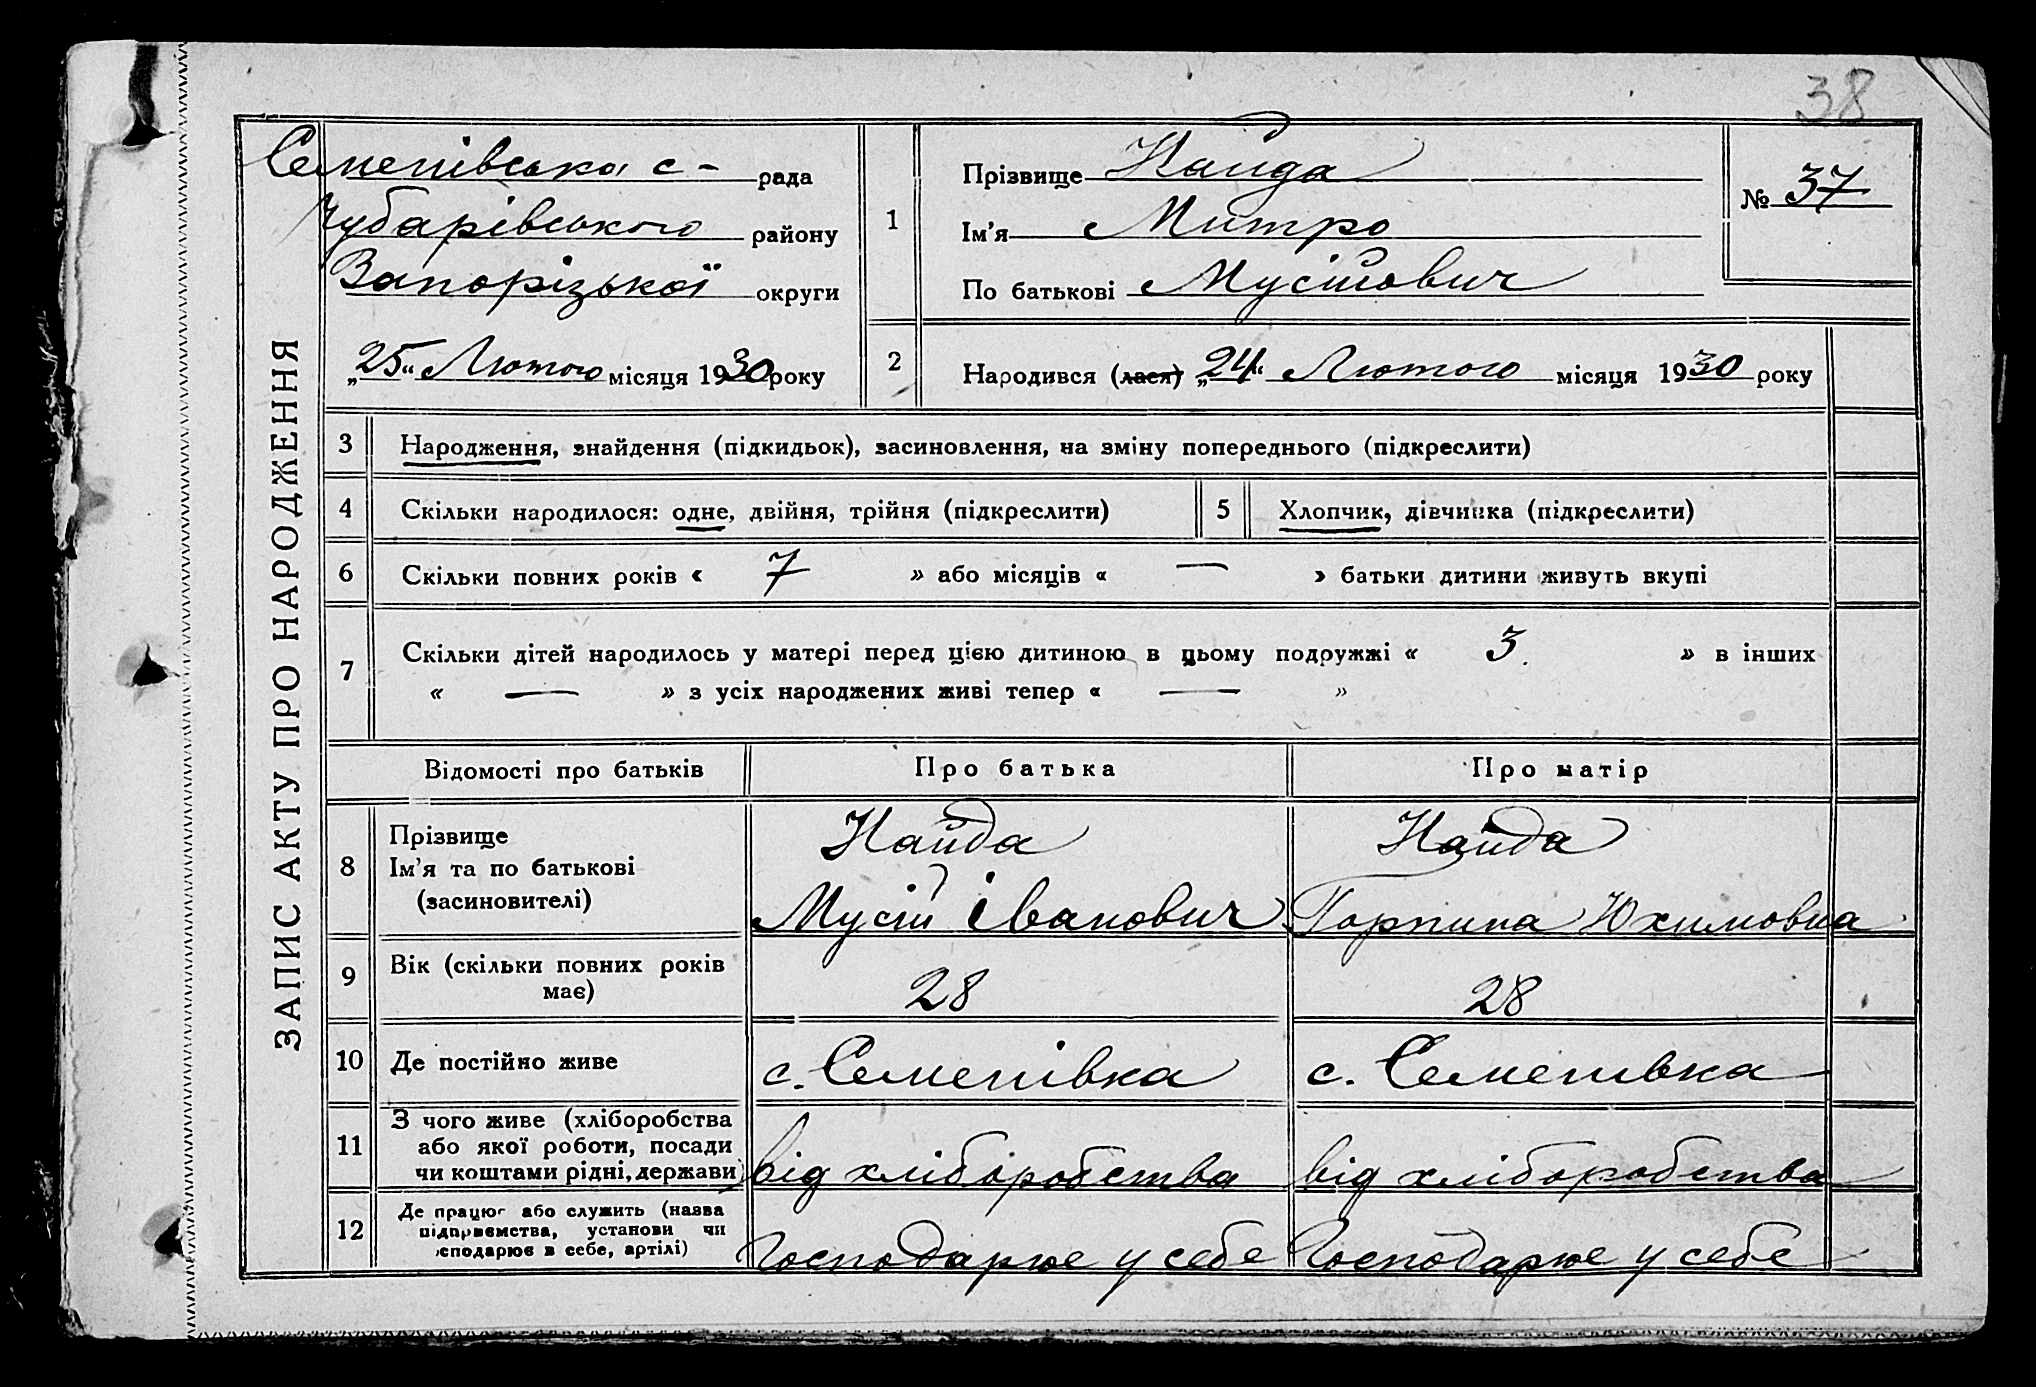 38
ЗАПИС АКТУ ПРО НАРОДЖЕННЯ
Семенівська с - рада
Чубарівського району
Запорізької округи
„25“ Лютого місяця 1930 року
1
Прізвище Найда
Ім'я Митро
По батькові Мусійович
№ 37
2
Народився (лася) „24“ Лютого місяця 1930 року
3 Народження, знайдення (підкидьок), засиновлення, на зміну попереднього (підкреслити)
4 Скільки народилося: одне, двійня, трійня (підкреслити) 5 Хлопчик, дівчинка (підкреслити)
6 Скільки повних років « 7 » або місяців « — » батьки дитини живуть вкупі
7 Скільки дітей народилось у матері перед цією дитиною в цьому подружжі « 3. » в інших
« — » з усіх народжених живі тепер « — »
Відомості про батьків Про батька Про матір
8 Прізвище
Ім'я та по батькові
(засиновителі)
Найда
Мусій Іванович
Найда
Горпина Юхимовна
9 Вік (скільки повних років
має)
28 28
10 Де постійно живе с. Семенівка с. Семенівка
11 З чого живе (хліборобства
або якої роботи, посади
чи коштами рідні, держави)
від хліборобства від хліборобства
12 Де працює або служить (назва
підприємства, установи чи
господарює в себе, артілі)
Господарює у себе Господарює у себе